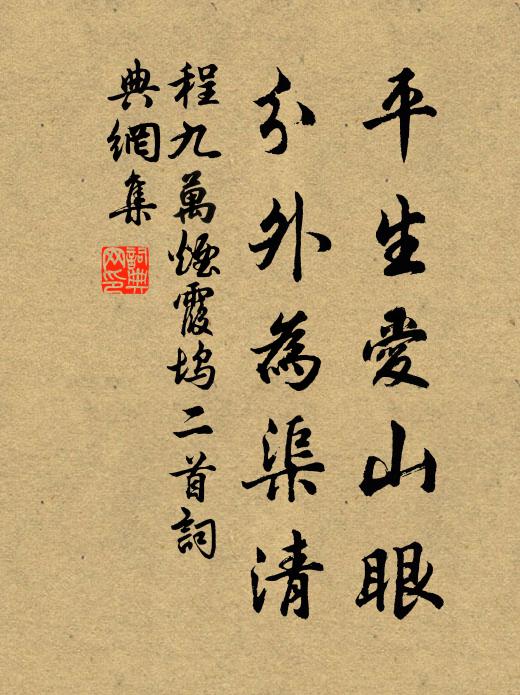 平生愛山眼
分外為渠清
程九萬煙霞塢二首詞
典網集
詞典網印